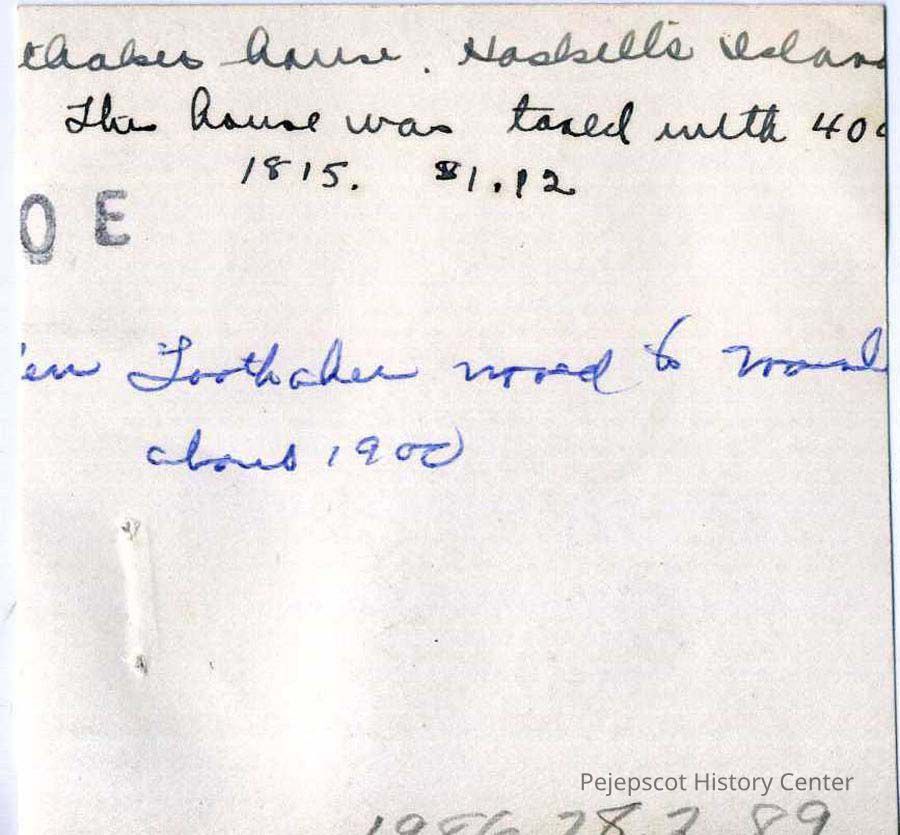 thaker house. Haskell's Islan
The house was taxed with 40
1815. $1.12
O E
en Toothaker moved to
about 1900
Pejepscot History Center
1986.28.2.89